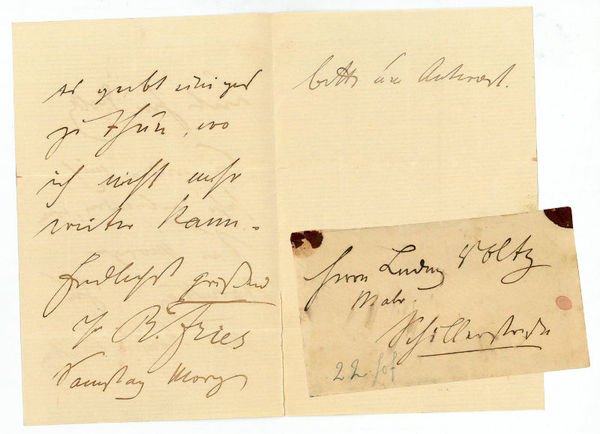 es giebt einiges
zu thun, wo
ich nicht mehr
weiter kann.
grüßend
B. Fries
Samstag Morg
bitte um Antwort.
Herrn Ludwig Voltz
Maler
Schillerstraße
22. Hof